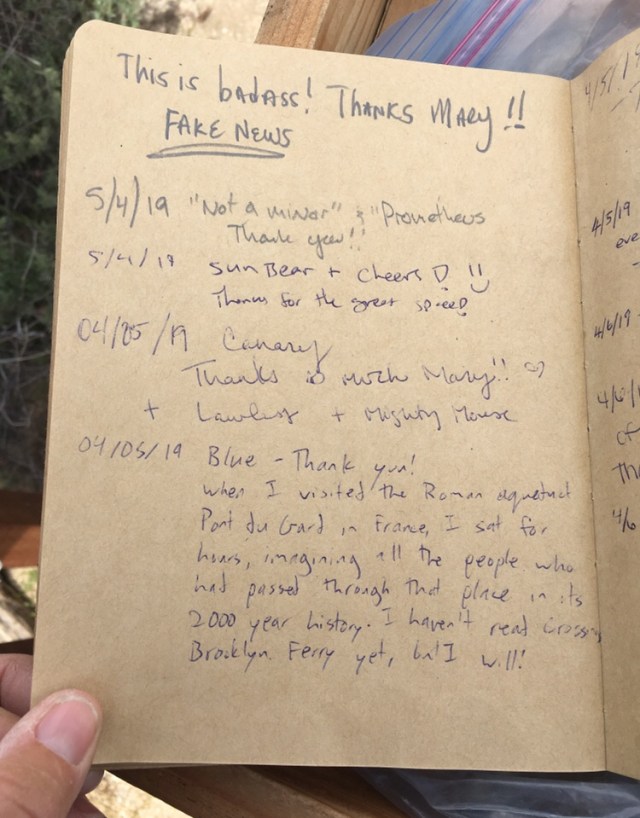 This is badass! Thanks Mary!!
FAKE NEWS
5/4/19 "Not a minor" & "Prometheus
Thank you!!
5/4/19 Sun Bear + Cheers
Thanks for the great
04/25/19 Canary
Thanks so much Mary!! ♡
+ Lawless + Mighty Mouse
04/05/19 Blue - Thank you!
When I visited the Roman aqueduct
Pont du Gard in France, I sat for
hours, imagining all the people who
had passed through that place in its
2000 year history. I haven't read Crossing
Brooklyn Ferry yet, but I will!
4/5/19
4/5/19
eve
4/6/19
4/6/1
of
Th
4/6